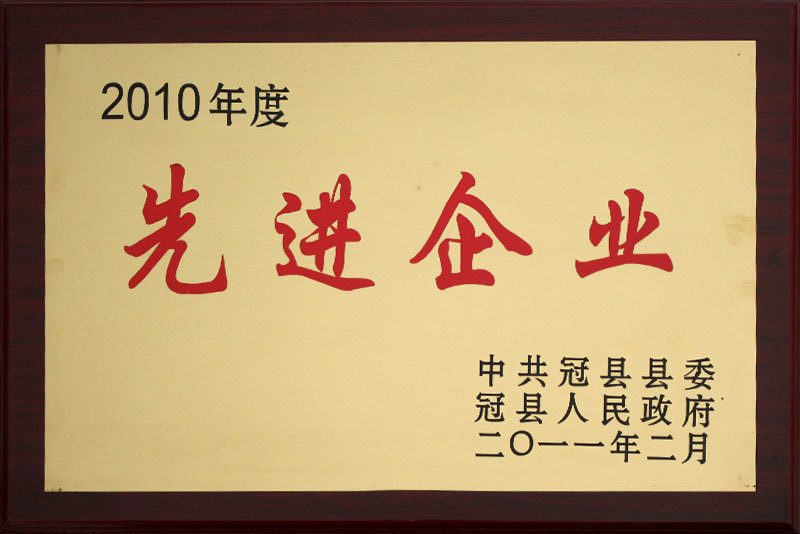 2010年度
先进企业
中共冠县县委
冠县人民政府
二〇一一年二月